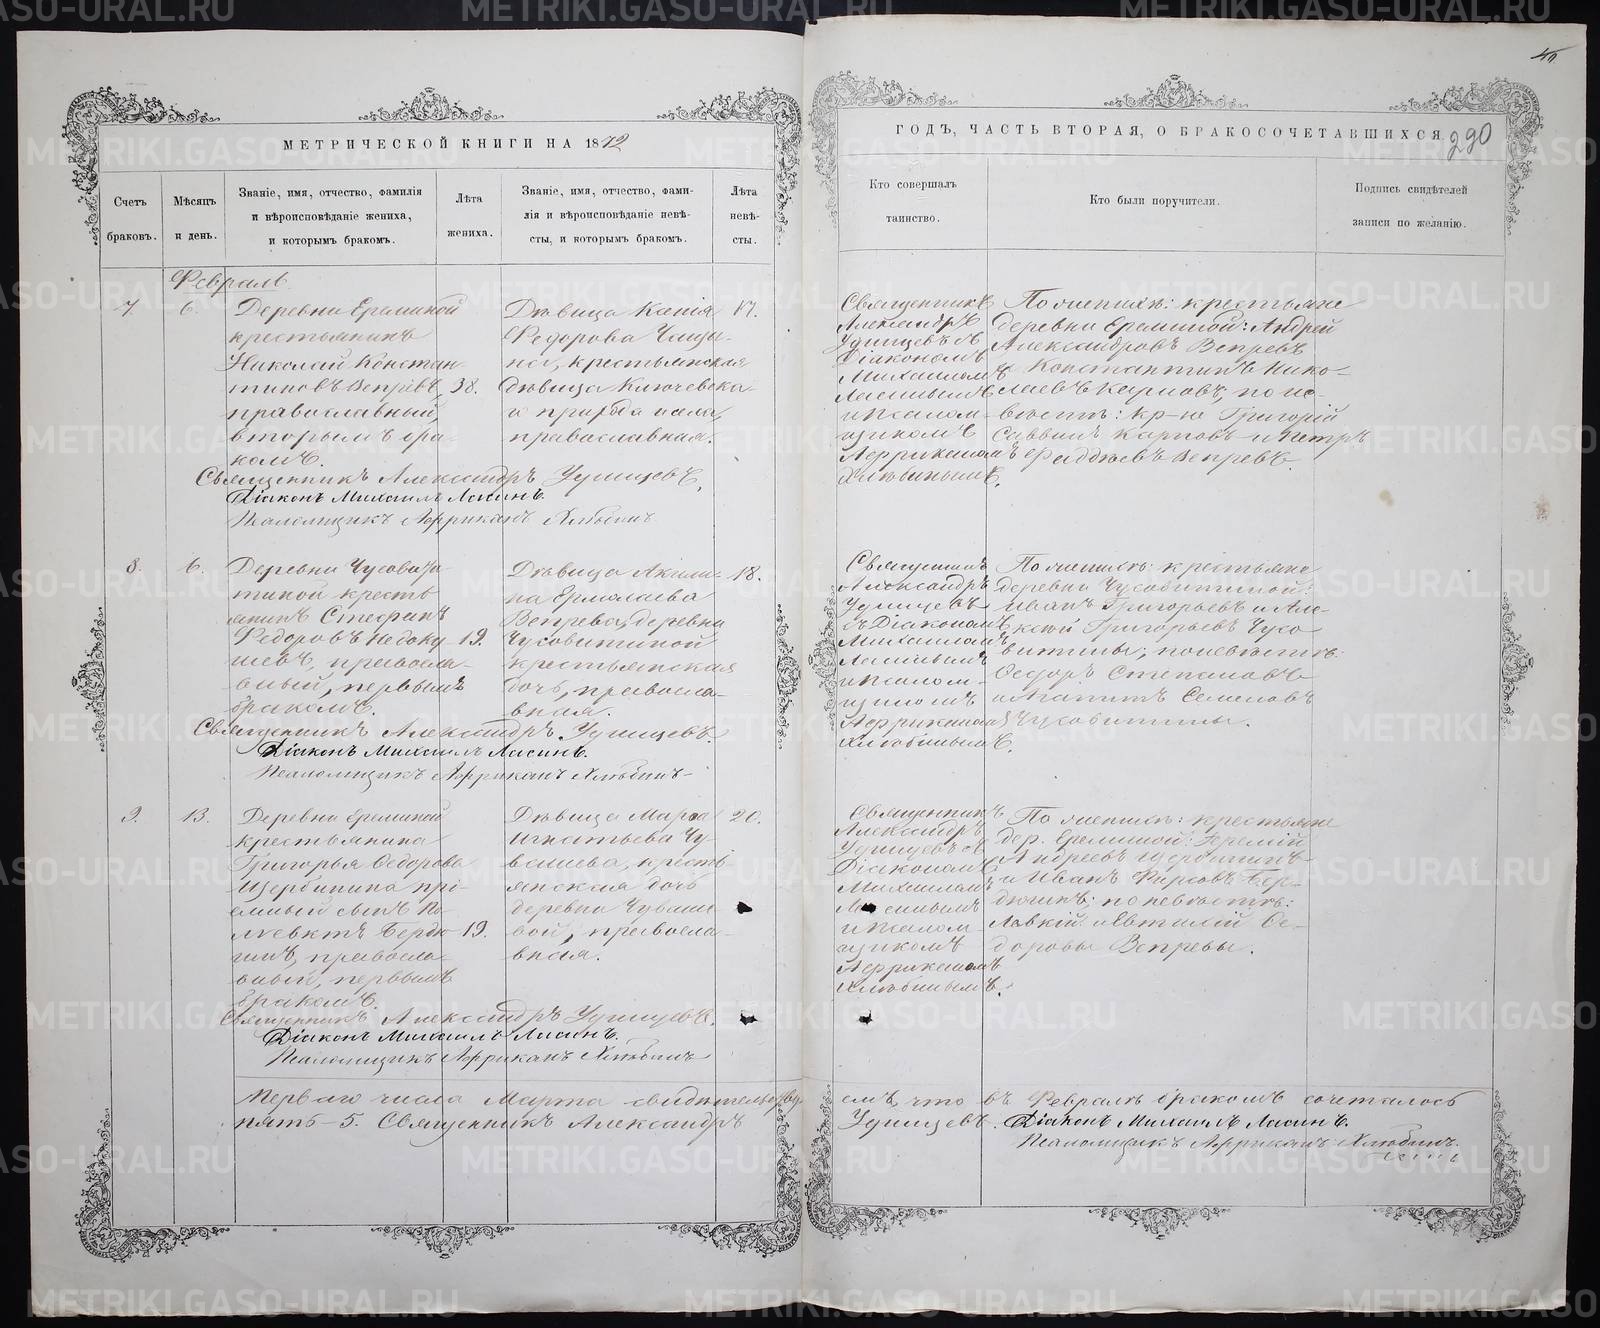 МЕТРИЧЕСКОЙ КНИГИ НА 1872
ГОДЪ, ЧАСТЬ ВТОРАЯ, О БРАКОСОЧЕТАВШИХСЯ
290
Счетъ
браковъ.
Мѣсяцъ
и день.
Званіе, имя, отчество, фамилія
и вѣроисповѣданіе жениха,
и которымъ бракомъ.
Лѣта
жениха.
Званіе, имя, отчество, фами-
лія и вѣроисповѣданіе невѣ-
сты, и которымъ бракомъ.
Лѣта
невѣ-
сты.
Кто совершалъ
таинство.
Кто были поручители.
Подпись свидѣтелей
записи по желанію.
Февраль
7
6.
Деревни Ереминой
крестьянинъ
Николай Констан-
тиновъ Вепревъ,
православный,
вторымъ бра-
комъ.
38.
Дѣвица Ксенія
Федорова
крестьянская
дѣвица Ключевска-
го прихода села,
православная.
17.
Священникъ
Александръ
Удинцевъ съ
Діакономъ
Михаиломъ
Ласинымъ
и Псалом-
щикомъ
Африканомъ
Хлѣбинымъ.
По женихѣ: крестьяне
деревни Ереминой: Андрей
Александровъ Вепревъ
Константинъ Нико-
лаевъ Карповъ, по не-
вѣстѣ: кр-не Григорій
Саввинъ Карповъ и Петръ
Фаддѣевъ Вепревъ.
Священникъ Александръ Удинцевъ.
Діаконъ Михаилъ Ласинъ.
Псаломщикъ Африканъ Хлѣбинъ
8.
6.
Деревни Чусови-
тиной кресть-
янинъ Стефанъ
Федоровъ Недоку-
шевъ, правосла-
вный, первымъ
бракомъ.
19.
Дѣвица Акили-
на Ермолаева
Вепрева, деревни
Чусовитиной
крестьянская
дочь, правосла-
вная.
18.
Священникъ
Александръ
Удинцевъ
съ Діакономъ
Михаиломъ
Ласинымъ
и Псалом-
щикомъ
Африканомъ
Хлѣбинымъ.
По женихѣ: крестьяне
деревни Чусовитиной:
Иванъ Григорьевъ и Але-
ксѣй Григорьевъ Чусо-
витины; по невѣстѣ:
Ѳедоръ Степановъ
и Ипатъ Семеновъ
Чусовитины.
Священникъ Александръ Удинцевъ.
Діаконъ Михаилъ Ласинъ.
Псаломщикъ Африканъ Хлѣбинъ
9.
13.
Деревни Ереминой
крестьянина
Григорья Ѳедорова
Щербинина прі-
емный сынъ По-
ліевктъ Бердю-
гинъ, правосла-
вный, первымъ
бракомъ.
19.
Дѣвица Марѳа
Игнатьева Чу-
вашева, кресть-
янская дочь
деревни Чуваше-
вой, правосла-
вная.
20.
Священникъ
Александръ
Удинцевъ съ
Діакономъ
Михаиломъ
Ласинымъ
и Псалом-
щикомъ
Африканомъ
Хлѣбинымъ.
По женихѣ: крестьяне
дер. Ереминой: Еремѣй
Андреевъ Щербининъ
и Иванъ Фирсовъ Бер-
дюгинъ; по невѣстѣ:
и Евтихій Ѳе-
доровы Вепревы.
Священникъ Александръ Удинцевъ.
Діаконъ Михаилъ Ласинъ.
Псаломщикъ Африканъ Хлѣбинъ
Перваго числа Марта свидѣтельству-
емъ, что въ Февралѣ бракомъ сочеталось
пять - 5. Священникъ Александръ
Удинцевъ. Діаконъ Михаилъ Ласинъ.
Псаломщикъ Африканъ Хлѣбинъ.
METRIKI.GASO-URAL.RU